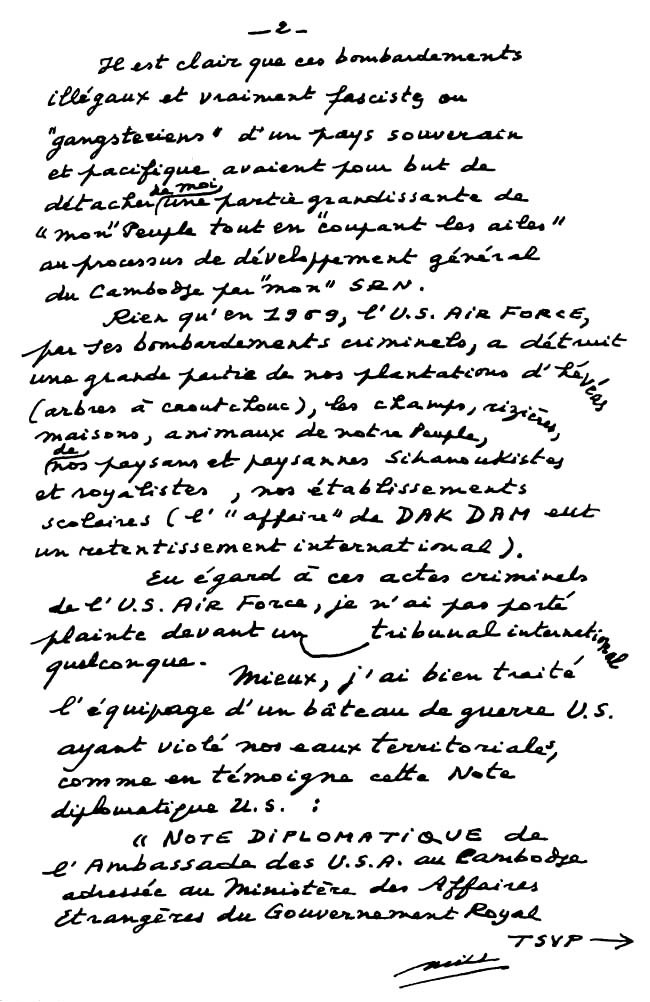 — 2 —
Il est clair que ces bombardements
illégaux et vraiment fascistes ou
"gangsteriens" d'un pays souverain
et pacifique avaient pour but de
détacher de moi une partie grandissante de
"mon" Peuple tout en "coupant les ailes"
au processus de développement général
du Cambodge par "mon" SRN.
Rien qu'en 1969, l'U.S. AIR FORCE,
par ses bombardements criminels, a détruit
une grande partie de nos plantations d'hévéas
(arbres à caoutchouc), les champs, rizières,
maisons, animaux de notre Peuple,
de nos paysans et paysannes Sihanoukistes
et royalistes, nos établissements
scolaires (l'"affaire" de DAK DAM eut
un retentissement international).
Eu égard à ces actes criminels
de l'U.S. AIR Force, je n'ai pas porté
plainte devant un tribunal international
quelconque.
Mieux, j'ai bien traité
l'équipage d'un bâteau de guerre U.S.
ayant violé nos eaux territoriales,
comme en témoigne cette Note
diplomatique U.S. :
" NOTE DIPLOMATIQUE de
l'Ambassade des U.S.A. au Cambodge
adressée au Ministère des Affaires
Etrangères du Gouvernement Royal
TSVP →